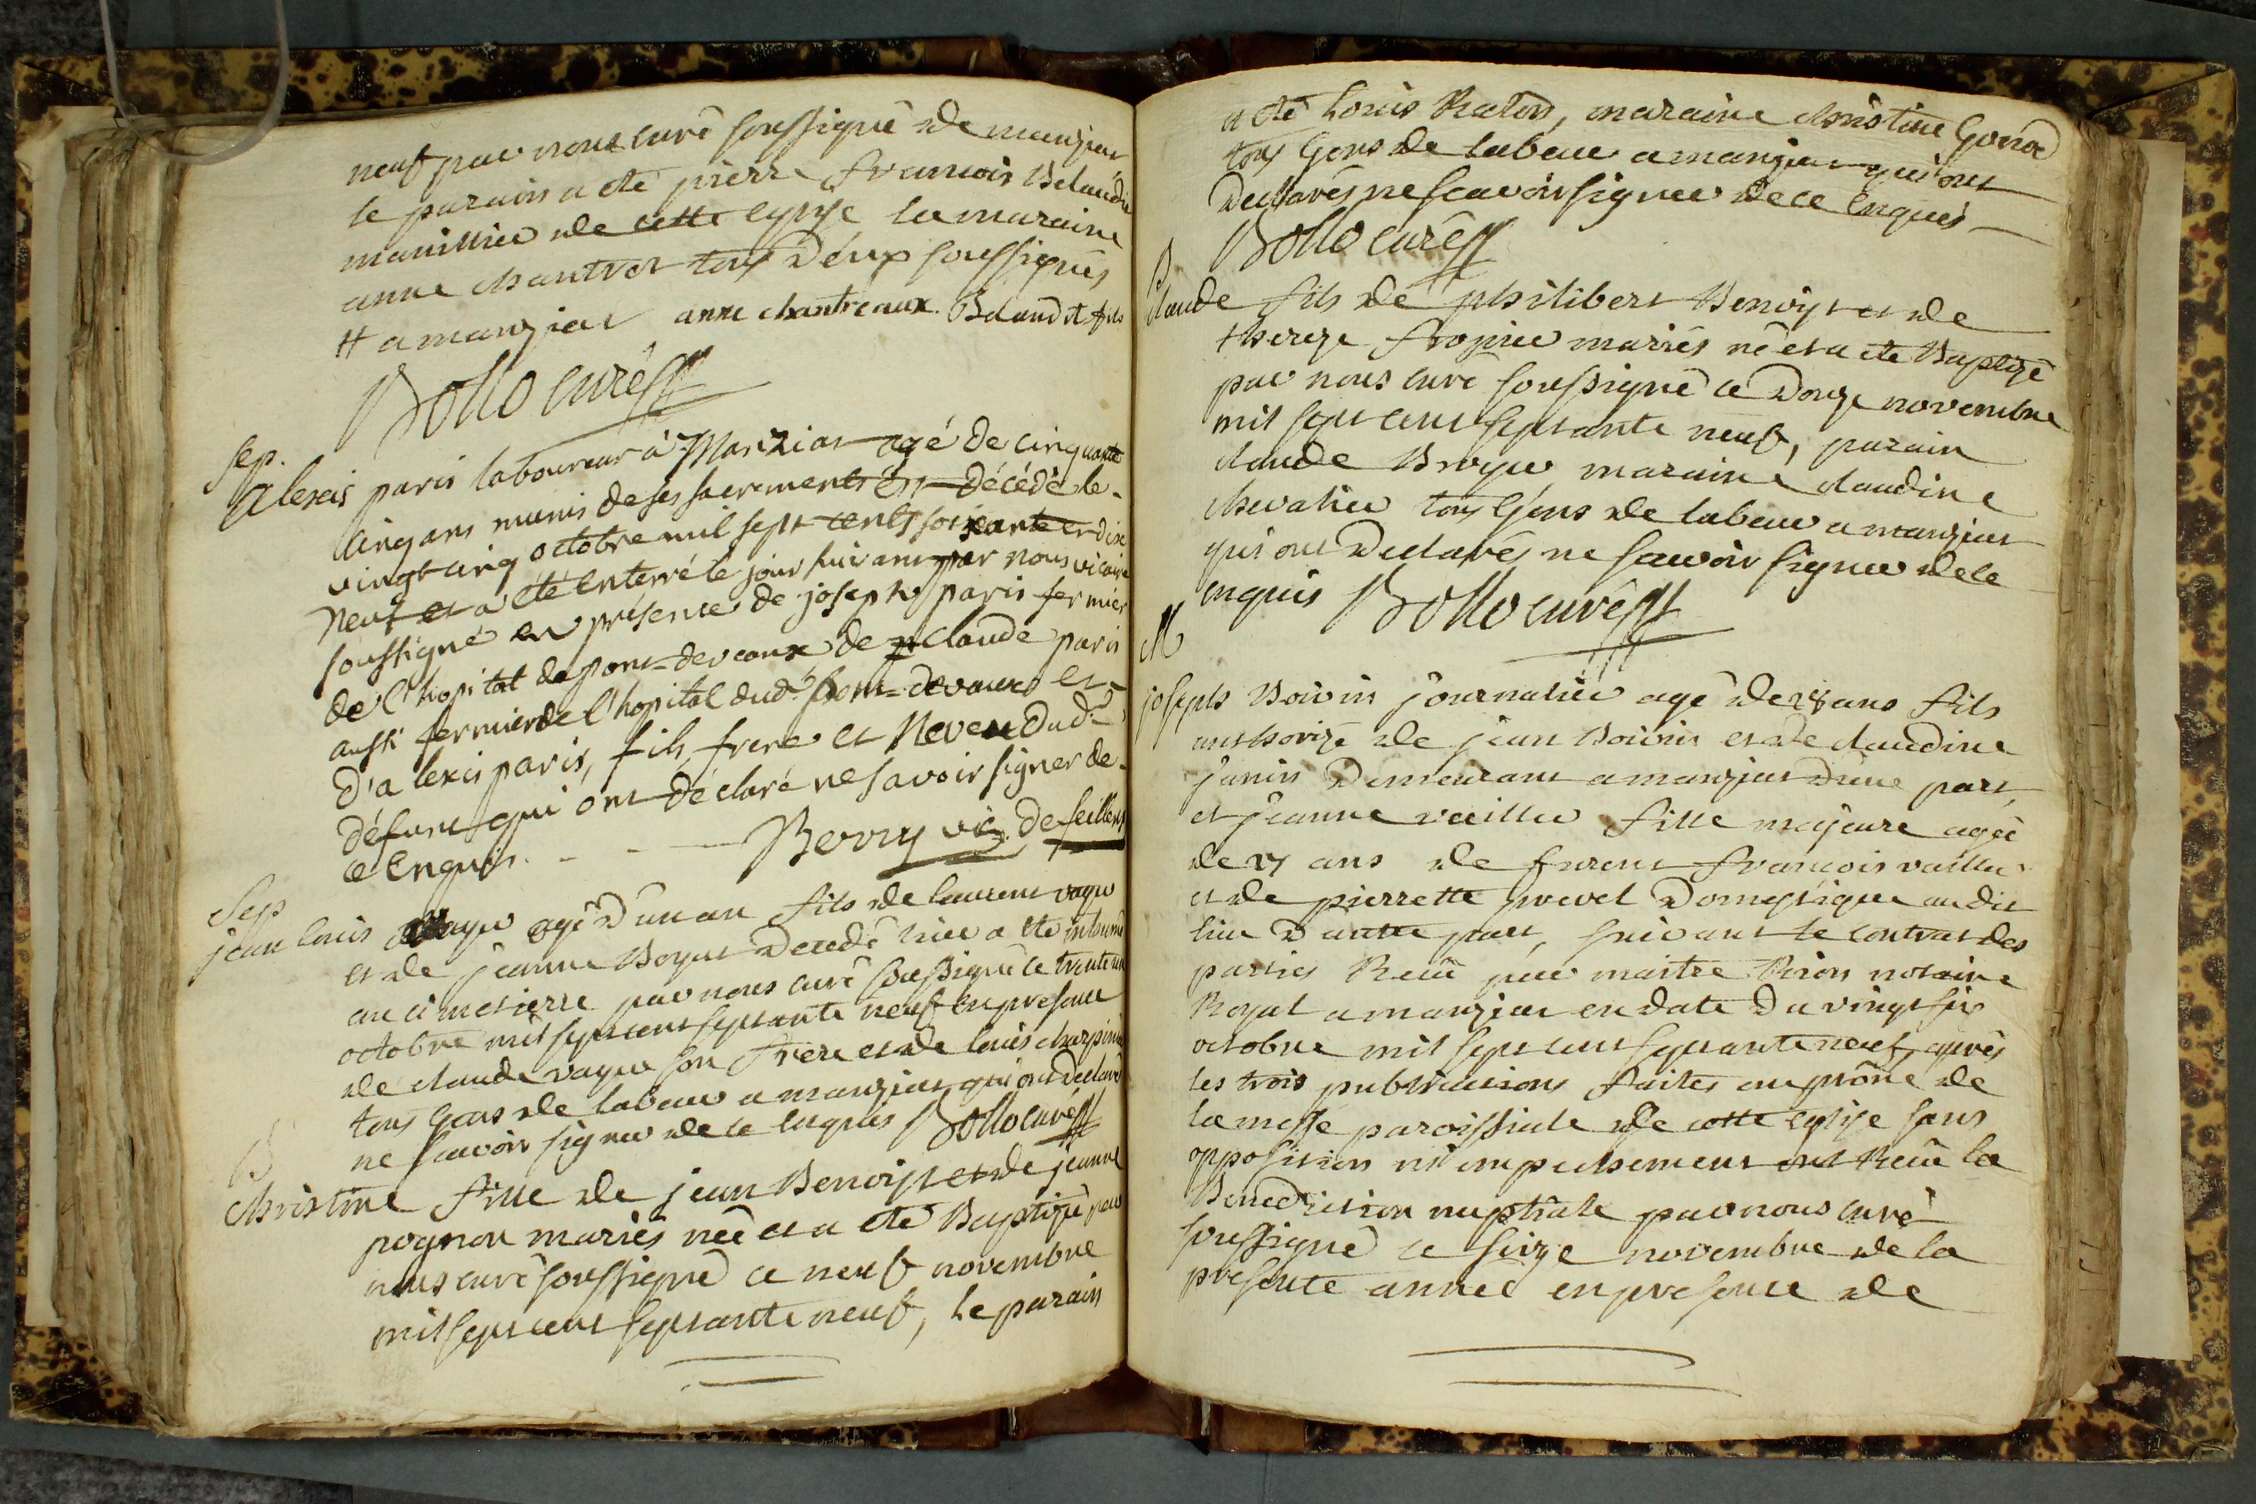 neuf par nous curé soussigné de manziat
le parain a été pierre francois Belaudit
manillier de cette eglise la maraine
anne chantret tous Deux soussignés
# a manziat anne chantreaux. Belaudit fils
Bollo curé
Sep.
Alexis paris laboureur à Manziat agé de cinquante
cinq ans munis de ses sacrements est décédé le
vingt cinq octobre mil sept cents soixante et dix
neuf et a été enterré le jour suivant par nous vicaire
soussigné en présence de joseph paris fermier
de l'hopital de pont-devaux de claude paris
aussi fermier de l'hopital dud. pont-devaux et
d'alexis paris, fils, frere et Neveu Dud.
défunt qui ont déclaré ne savoir signer de
ce Enquis. Berry vic. de feillens
Sep
jean louis vayu agé D'un an fils de laurent vayu
et de jeanne Boyat Decedé hier a été inhumé
au cimetierre par nous curé soussigné le trente un
octobre mil sept cent septante neuf en presence
de claude vayu son frere et de louis charpinie
tous Gens de labeur a manziat qui ont Declaré
ne scavoir signer de ce Enquis Bollo curé
B
christine fille de jean Benoist et de jeanne
pognon mariés née et a été Baptizé par
nous curé soussigné ce neuf novembre
mil sept cent septante neuf, le parain
a été louis Raton, maraine christine Goinod
tous Gens de labeur a manziat qui ont
Declarés ne scavoir signer de ce Enquis
Bollo curé
B
claude fils de philibert Benoist et de
thereze fropier mariés né et a été Baptizé
par nous curé soussigné ce Douze novembre
mil sept cent septante neuf, parain
claude Broyer maraine claudine
chevalier tous Gens de labeur a manziat
qui ont Declarés ne scavoir signer de ce
enquis Bollo curé
M
joseph Boivin journalier agé de 28 ans fils
authorizé de jean Boivin et de claudine
janin Demeurant a manziat D'une part,
et jeanne vailler fille majeure agée
de 27 ans de furent francois vailler
et de pierrette prevel Domestique au dit
lieu D'autre part, suivant le contrat des
parties Recû par maitre Rion notaire
Royal a manziat en date Du vingt six
octobre mil sept cent septante neuf, après
les trois publications faites au prône de
la messe paroissiale de cette eglise sans
opposition ni empechement ont Recû la
Benediction nuptiale par nous curé
soussigné ce seize novembre de la
presente année en presence de